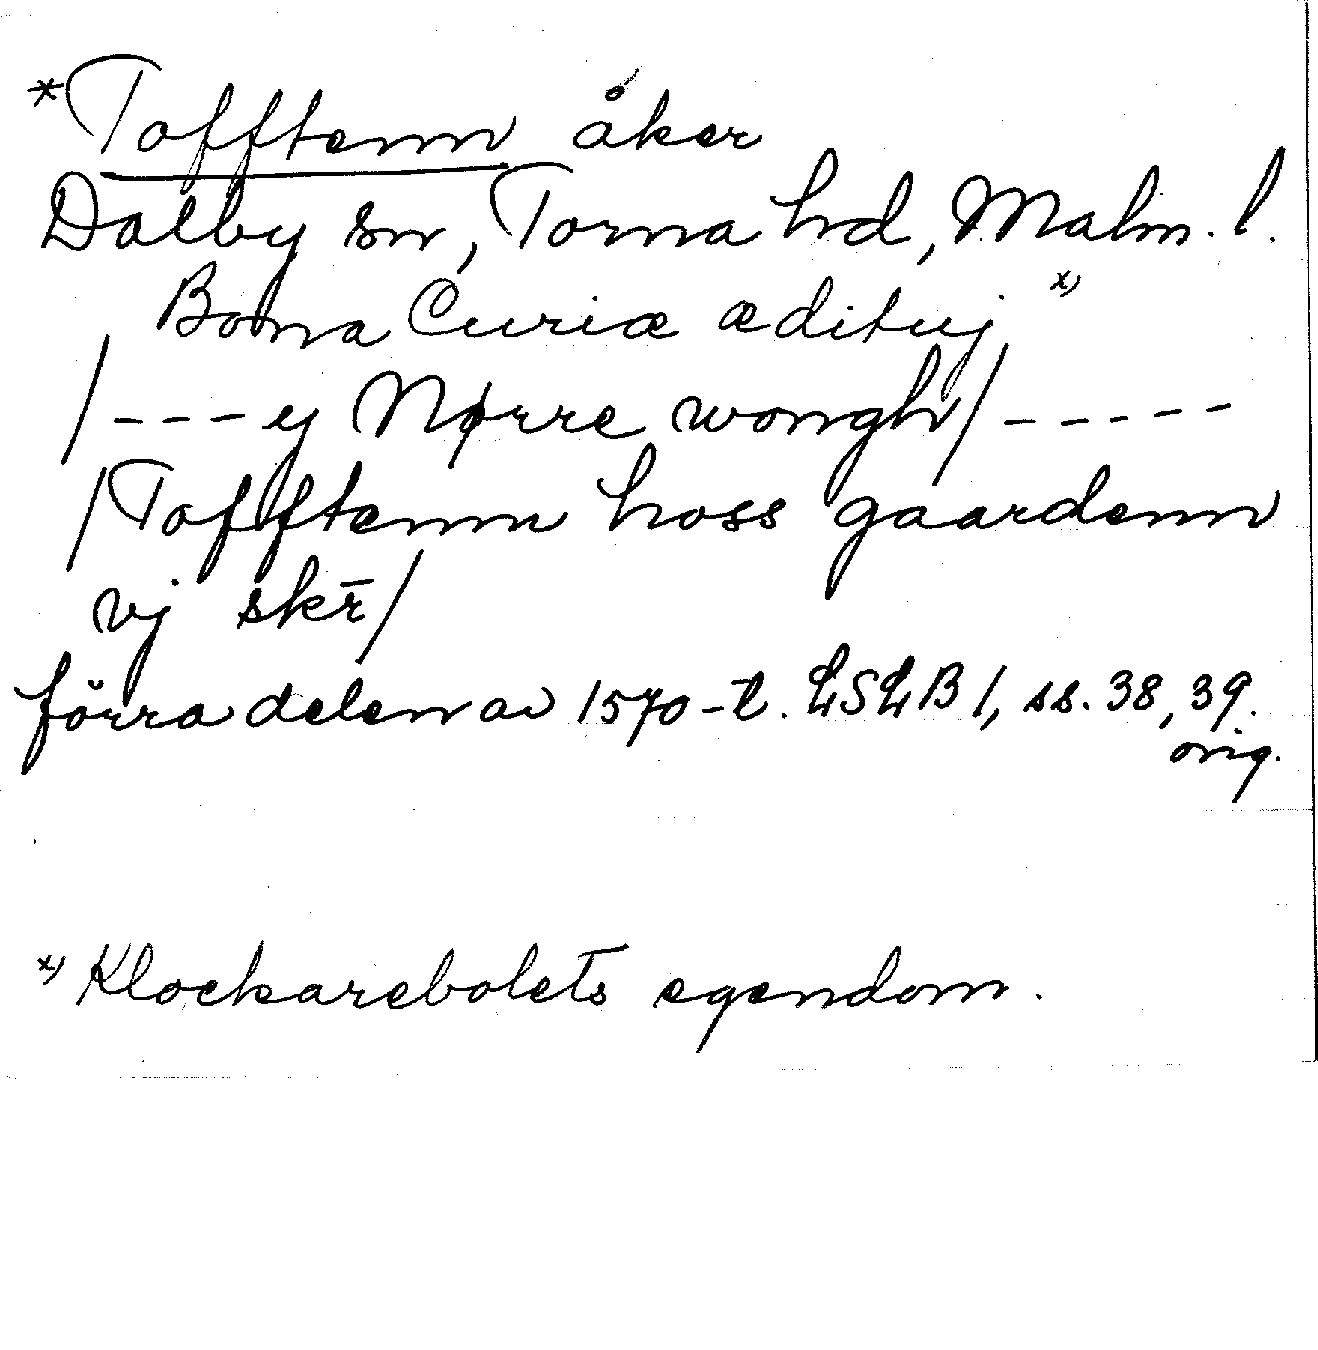 *Tofftenn åker
Dalby sn, Torna hd, Malm. l.
Bona Curiæ æditui x)
/---y Nørre wongh/-----
/Tofftennn hoss gaardenn
vj skr̄/
förra delen av 1570-t. LSLB 1, ss. 38, 39.
orig.
x) Klockarebolets egendom.